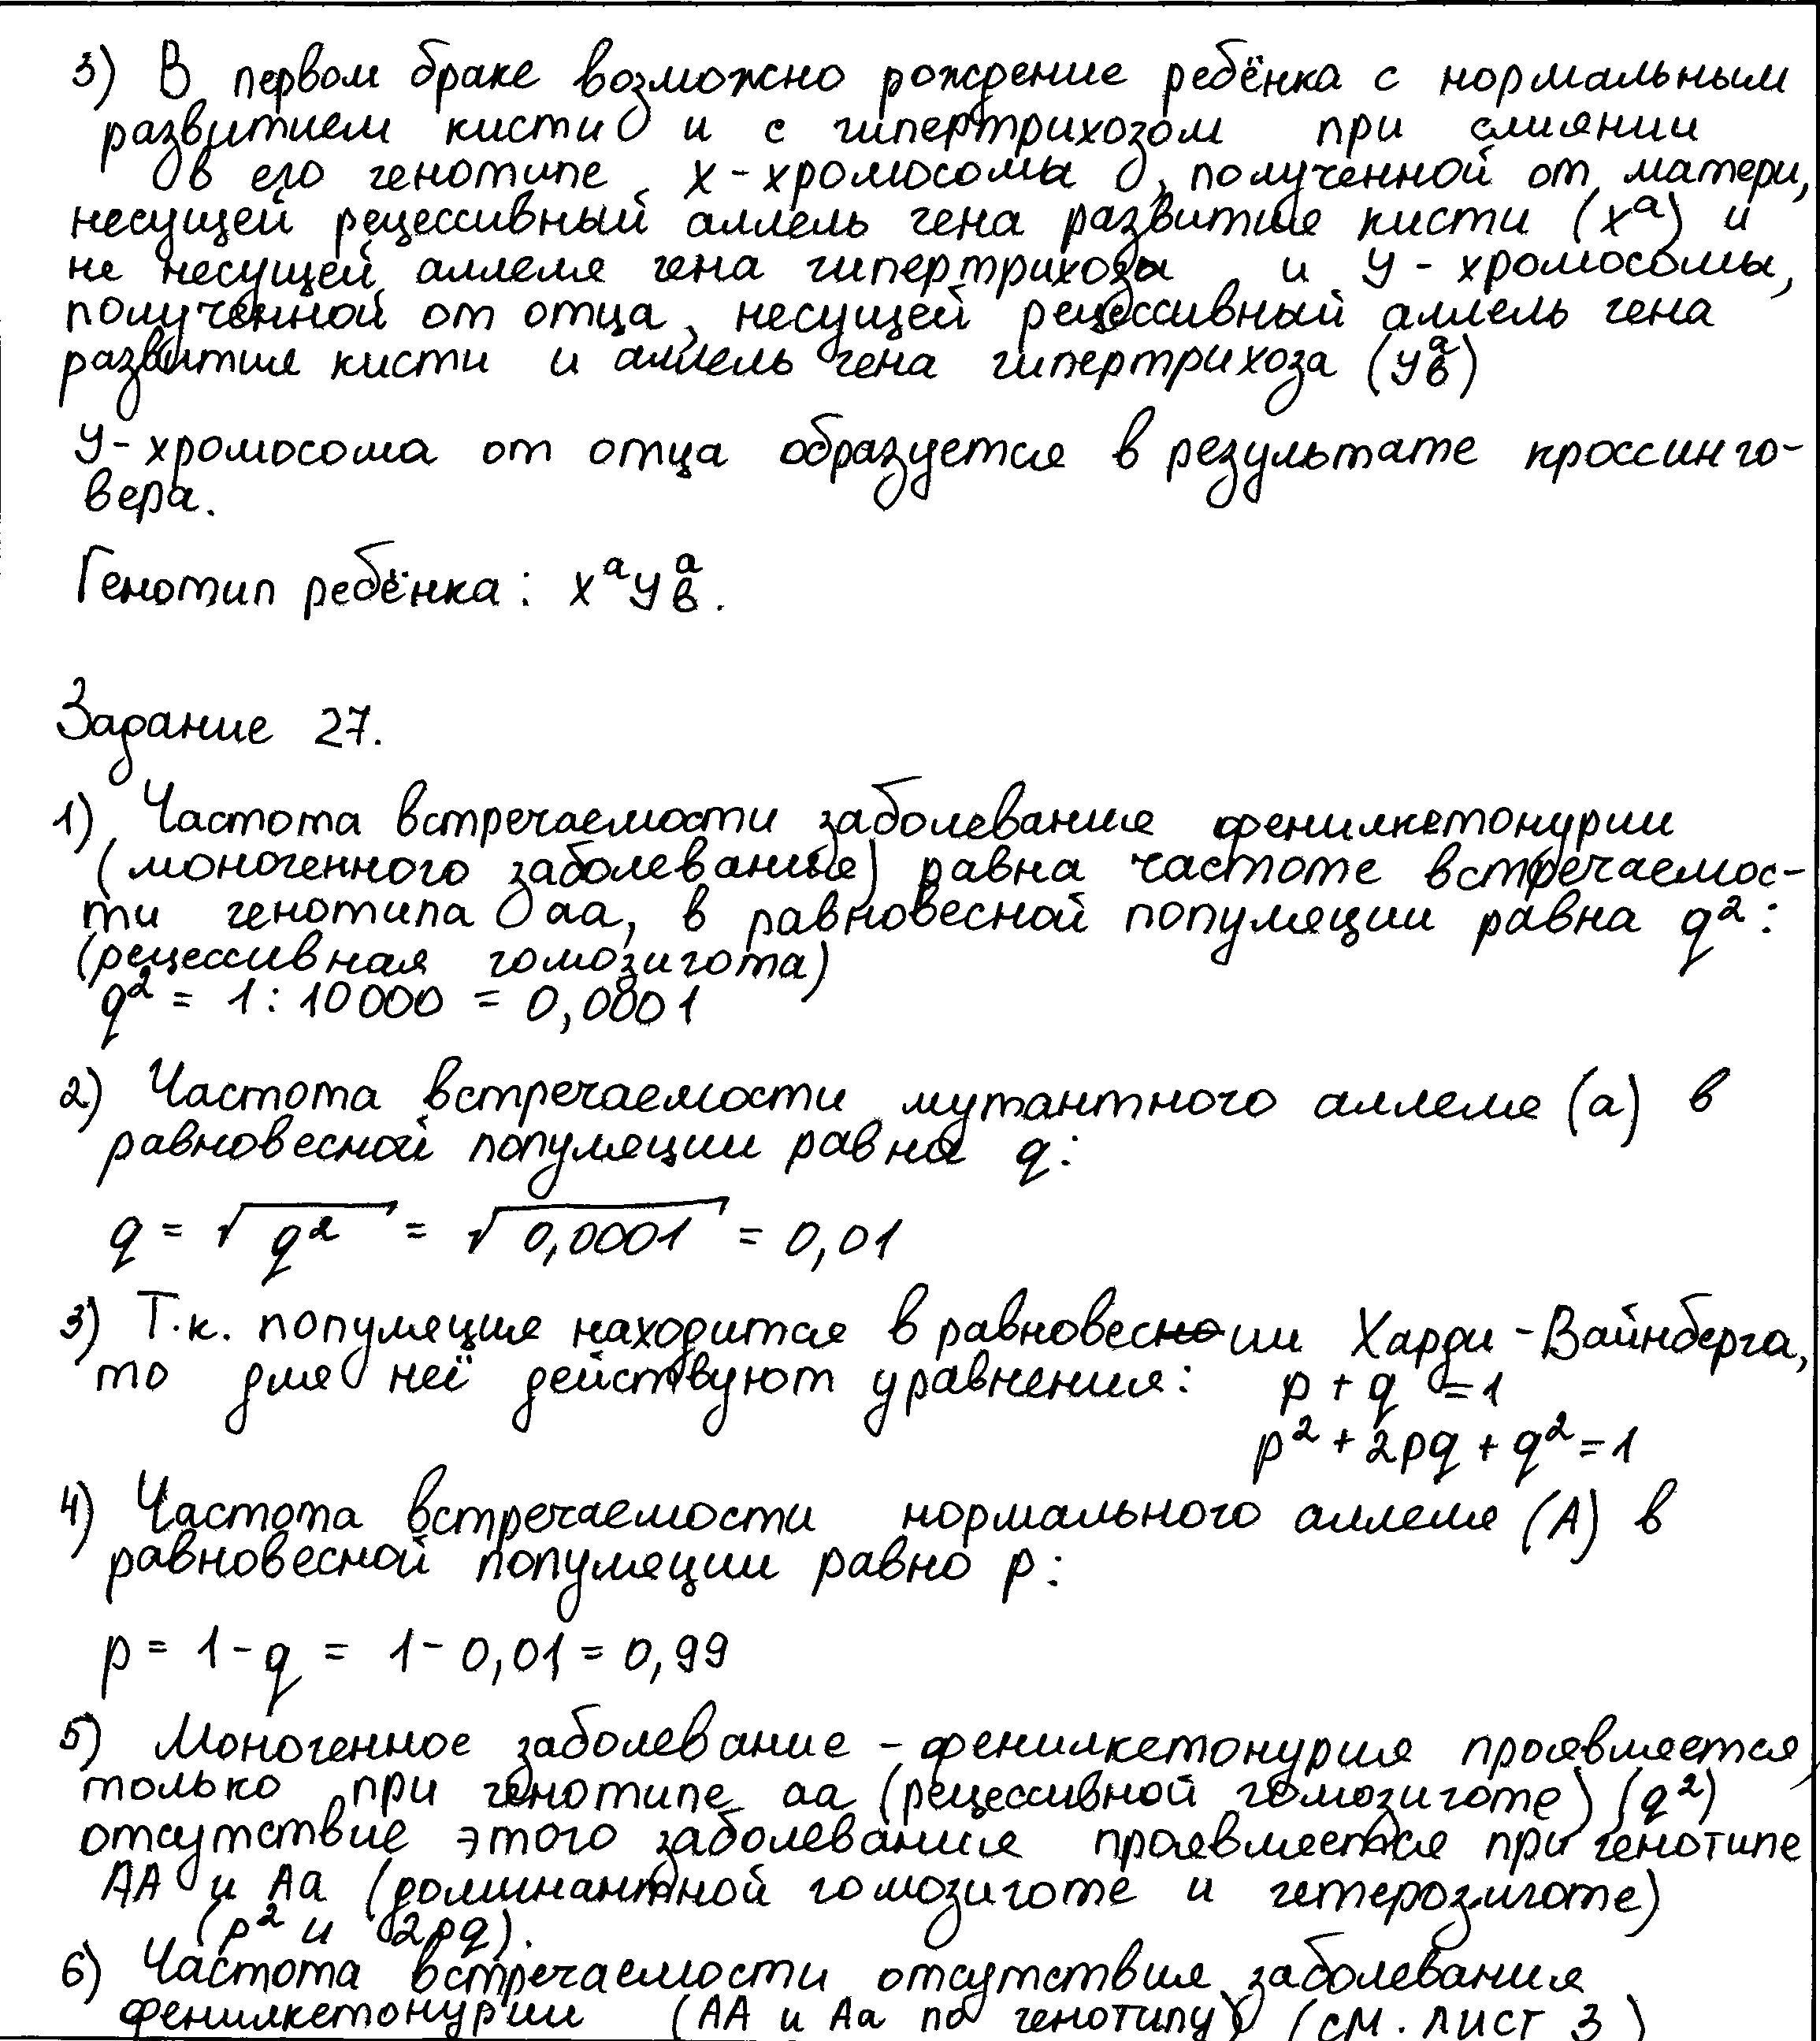 3) В первом браке возможно рождение ребёнка с нормальным
развитием кисти и с гипертрихозом при слиянии
в его генотипе х-хромосомы, полученной от матери,
несущей рецессивный аллель гена развития кисти (xᵃ) и
не несущей аллеля гена гипертрихоза и У-хромосомы,
полученной от отца, несущей рецессивный аллель гена
развития кисти и аллель гена гипертрихоза (Уᵃв)
У-хромосома от отца образуется в результате кроссинго-
вера.
Генотип ребёнка: хᵃУᵃв.
Задание 27.
1) Частота встречаемости заболевания фенилкетонурии
(моногенного заболевания) равна частоте встречаемос-
ти генотипа аа, в равновесной популяции равна q²:
(рецессивная гомозигота)
q² = 1 : 10000 = 0,0001
2) Частота встречаемости мутантного аллеля (а) в
равновесной популяции равна q:
q = √q² = √0,0001 = 0,01
3) Т.к. популяция находится в равновесии Харди-Вайнберга,
то для неё действуют уравнения: p + q = 1
p² + 2pq + q² = 1
4) Частота встречаемости нормального аллеля (А) в
равновесной популяции равно p:
p = 1 - q = 1 - 0,01 = 0,99
5) Моногенное заболевание - фенилкетонурия проявляется,
только при генотипе аа (рецессивной гомозиготе) (q²)
отсутствие этого заболевания проявляется при генотипе
АА и Аа (доминантной гомозиготе и гетерозиготе)
(p² и 2pq).
6) Частота встречаемости отсутствия заболевания
фенилкетонурии (АА и Аа по генотипу) (см. лист 3)